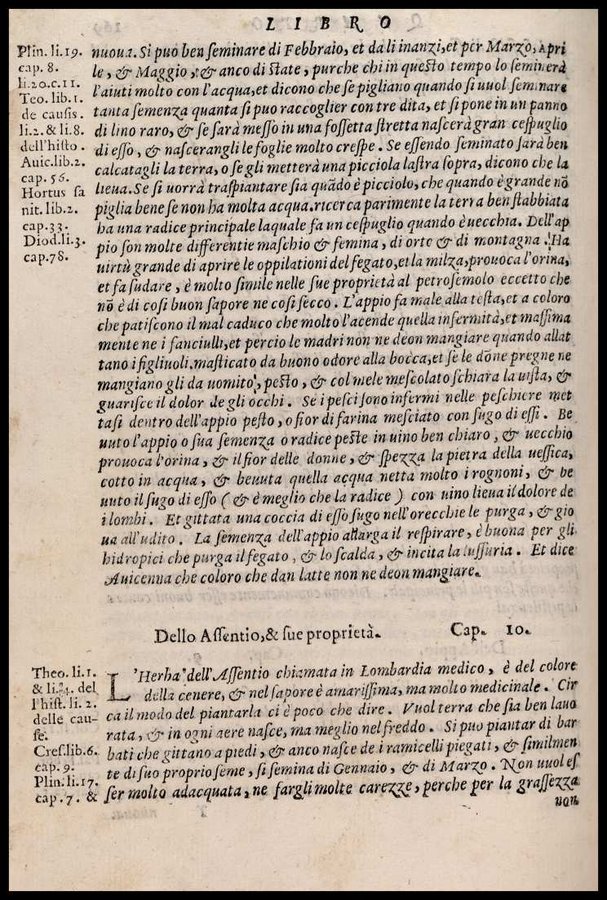 LIBRO
Plin. li. 19.
cap. 8.
li. 20. c. 11.
Teo. lib. 1.
de causis.
li. 2. & li. 8.
dell'histo.
Auic. lib. 2.
cap. 56.
Hortus sa
nit. lib. 2.
cap. 33.
Diod. li. 3.
cap. 78.
nuoua. Si può ben seminare di Febbraio, et da li inanzi, et per Marzo, Apri
le, & Maggio, & anco di state, purche chi in questo tempo lo seminerà
l'aiuti molto con l'acqua, et dicono che se pigliano quando si uuol seminare
tanta semenza quanta si puo raccoglier con tre dita, et si pone in un panno
di lino raro, & se sarà messo in una fossetta stretta nascerà gran cespuglio
di esso, & nascerangli le foglie molto crespe. Se essendo seminato sarà ben
calcatagli la terra, o se gli metterà una picciola lastra sopra, dicono che la
lieua. Se si uorrà traspiantare sia quãdo è picciolo, che quando è grande nõ
piglia bene se non ha molta acqua. ricerca parimente la terra ben stabbiata
ha una radice principale laquale fa un cespuglio quando è uecchia. Dell'ap
pio son molte differentie maschio & femina, di orte & di montagna. Ha
uirtù grande di aprire le oppilationi del fegato, et la milza, prouoca l'orina,
et fa sudare, è molto simile nelle sue proprietà al petrosemolo eccetto che
nõ è di così buon sapore ne così secco. L'appio fa male alla testa, et a coloro
che patiscono il mal caduco che molto l'acende quella infermità, et massima
mente ne i fanciulli, et perciò le madri non ne deon mangiare quando allat
tano i figliuoli. masticato da buono odore alla bocca, et se le dõne pregne ne
mangiano gli da uomito, pesto, & col mele mescolato schiara la uista, &
guarisce il dolor de gli occhi. Se i pesci sono infermi nelle peschiere met
tasi dentro dell'appio pesto, o fior di farina mesciato con sugo di essi. Be
uuto l'appio o sua semenza o radice peste in uino ben chiaro, & uecchio
prouoca l'orina, & il fior delle donne, & spezza la pietra della uessica,
cotto in acqua, & beuuta quella acqua netta molto i rognoni, & be
uuto il sugo di esso (& è meglio che la radice) con uino lieua il dolore de
i lombi. Et gittata una coccia di esso sugo nell'orecchie le purga, & gio
ua all'udito. La semenza dell'appio allarga il respirare, è buona per gli
hidropici che purga il fegato, & lo scalda, & incita la lussuria. Et dice
Auicenna che coloro che dan latte non ne deon mangiare.
Dello Assentio, & sue proprietà. Cap. 10.
Theo. li. 1.
& li. 4. del
l'hist. li. 2.
delle cau-
se.
Cres. lib. 6.
cap. 9.
Plin. li. 17.
cap. 7. &
L'Herba dell'Assentio chiamata in Lombardia medico, è del colore
della cenere, & nel sapore è amarissima, ma molto medicinale. Cir
ca il modo del piantarla ci è poco che dire. Vuol terra che sia ben lauo
rata, & in ogni aere nasce, ma meglio nel freddo. Si può piantar di bar
bati che gittano a piedi, & anco nasce de i ramicelli piegati, & similmen
te di suo proprio seme, si semina di Gennaio, & di Marzo. Non uuol es
ser molto adacquata, ne fargli molte carezze, perche per la grassezza
non